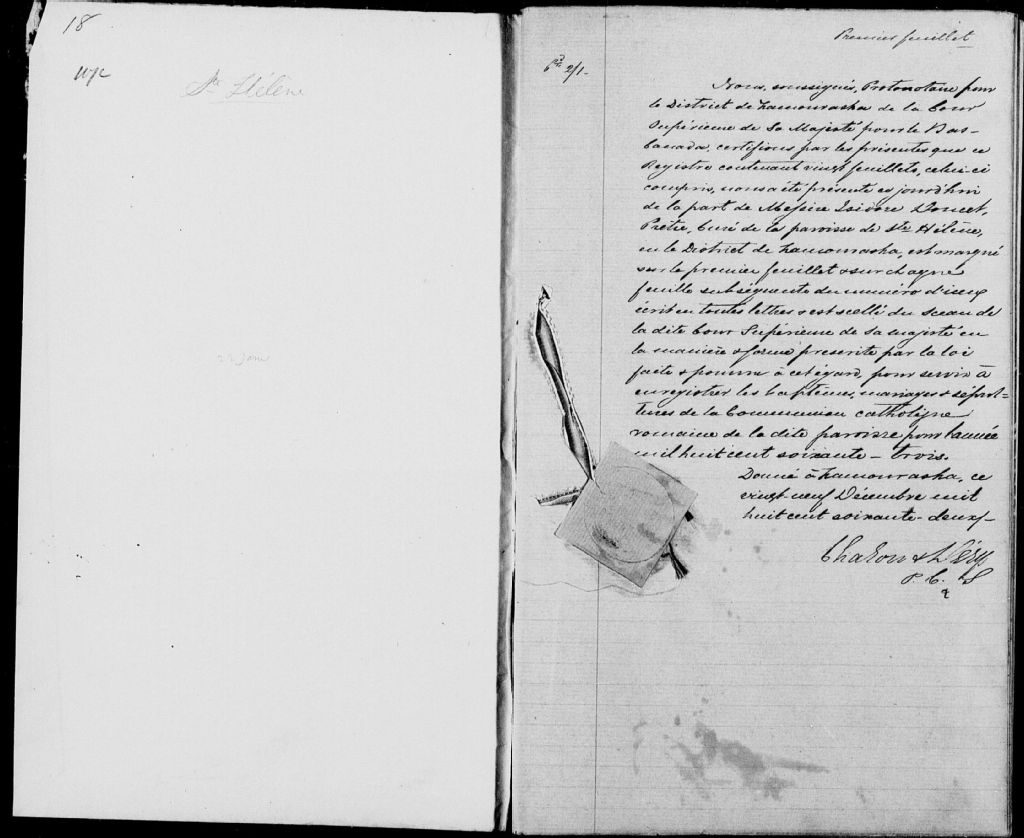 18
Ste Hélène
22 Janv
Premier feuillet
2/1-
Nous, soussignés, Protonotaire pour
le District de Kamouraska de la Cour
Supérieure de Sa Majesté pour le Bas-
Canada, certifions par les présentes que ce
Registre contenant vingt feuillets, celui-ci
compris, nous a été présenté ce jourd'hui
de la part de Messire Isidore Doucet,
Prêtre, Curé de la paroisse de Ste Hélène,
en le District de Kamouraska, est marqué
sur le premier feuillet & sur chaque
feuille subséquente du numéro d'iceux
écrit en toutes lettres & est scellé du sceau de
la dite Cour Supérieure de Sa Majesté en
la manière & forme prescrite par la loi
faite & pourvue à cet égard, pour servir à
enregistrer les baptêmes, mariages & sépul-
tures de la Communion catholique
romaine de la dite paroisse pour l'année
mil huit cent soixante-trois.
Donné à Kamouraska, ce
vingt-neuf Décembre mil
huit cent soixante-deux-
P. C. S